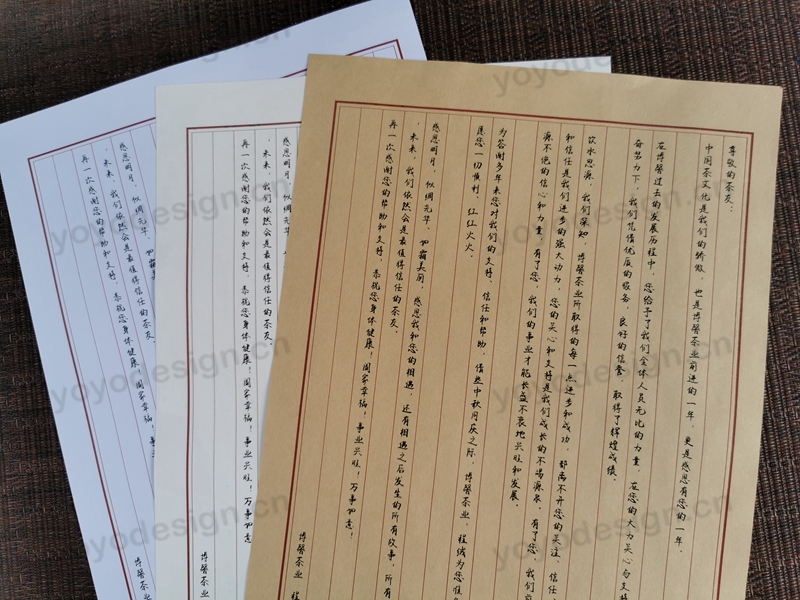 尊敬的茶友：
中国茶文化是我们的骄傲，也是博馨茶业前进的一年，更是感恩有您的一年，
在博馨过去的发展历程中，您给予了我们全体人员无比的力量，在您的大力关心与支
奋努力下，我们凭借优质的服务，良好的信誉，取得了辉煌成绩。
饮水思源，我们深知，博馨茶业所取得的每一点进步和成功，都离不开您的关注、信任
和信任是我们进步的强大动力，您的关心和支持是我们成长的不竭源泉，有了您，我们
源不绝的信心和力量，有了您，我们的事业才能长盛不衰地兴旺和发展。
为答谢多年来您对我们的支持、信任和帮助，值此中秋月庆之际，博馨茶业，程诚为您准
愿您一切顺利、红红火火。
感恩明月，似绸元华、如霜美丽，感恩我和您的相遇，还有相遇之后发生的所有故事，所有
未来，我们依然会是最值得信任的茶友。
再一次感谢您的帮助和支持，恭祝您身体健康！阖家幸福！事业兴旺！万事如意！
博馨茶业 程
感恩明月，似绸元华、
未来，我们依然会是最值得信任的茶友。
再一次感谢您的帮助和支持，恭祝您身体健康！阖家幸福！事业兴旺！万事如意
博馨茶业
感恩明月，似绸元华、如霜美丽，
未来，我们依然会是最值得信任的茶友。
再一次感谢您的帮助和支持，恭祝您身体健康！阖家幸福！事
博馨茶业
yoyodesign.cn
yoyodesign.cn
yoyodesign.cn
yoyodesign.cn
yoyodesign.cn
yoyodesign.cn
yoyodesign.cn
yoyodesign.cn